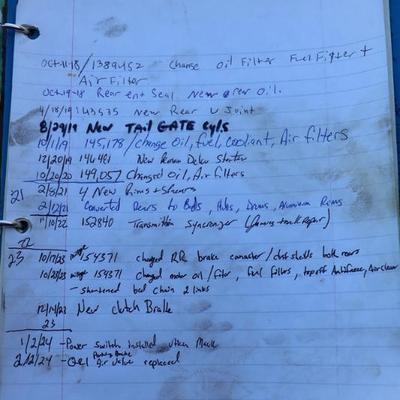 Oct-11-18 / 1389452 Change Oil Filter Fuel Figter +
Air Filter
Oct-19-18 Rear ent Seal New rear oil.
4/18/19 143535 New Rear U Joint
8/29/19 New TAIL GATE Cyls
10/1/19 145,178 / Change Oil, fuel, coolant, Air filters
12/20/19 146461 New Remn Delco Starter
10/20/20 149,057 Changed Oil, Air filters
21 2/8/21 4 New Rims +
2/12/21 Converted Rears to , Hubs, Drums, Aluminum Rims
1/10/22 152840 Syncronizer (
22
23 10/7/23 154371 changed RR brake canaster / dust shells both rears
10/28/23 154371 changed motor oil / filter, fuel filters, top off Antifreeze, Air cleaner
- shortened bed chain 2 links
12/14/23 New clutch Brake
23
1/2/24 - Power Switch Installed
2/2/24 - Parking Brake Air Valve replaced